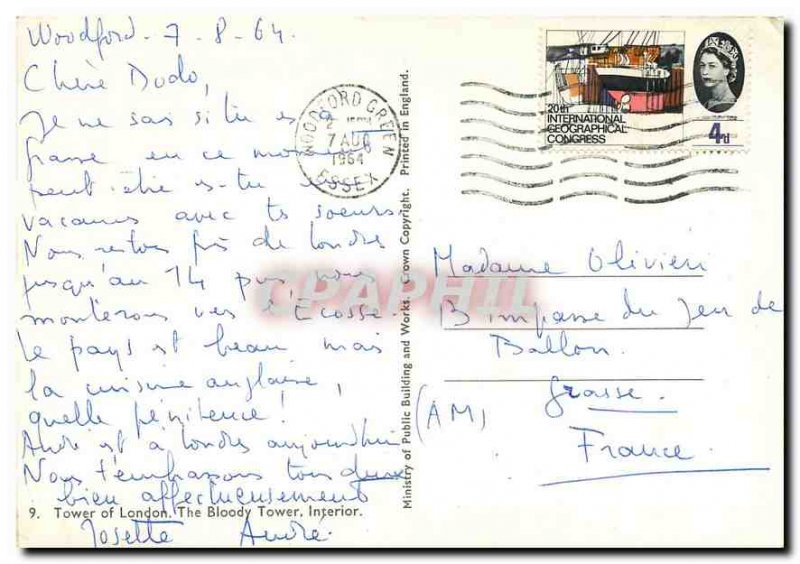 Woodford - 7 - 8 - 64.
Chère Dodo,
Je ne sais si tu es à
Grasse en ce moment
peut-être es-tu en
vacances avec ts soeurs
Nous restons près de Londres
jusqu'au 14 puis nous
monterons vers l'Ecosse.
Le pays est beau mais
la cuisine anglaise,
quelle pénitence!
André est à Londres aujourd'hui
Nous t'embrassons tous deux
bien affectueusement
9. Tower of London. The Bloody Tower, Interior.
Josette André.
WOODFORD GREEN
7 AUG
1964
ESSEX
Ministry of Public Building and Works. Crown Copyright. Printed in England.
20th
INTERNATIONAL
GEOGRAPHICAL
CONGRESS
4d
Madame Olivieri
3 impasse du Jeu de
Ballon.
Grasse.
(AM)
France.
CPAPHIL